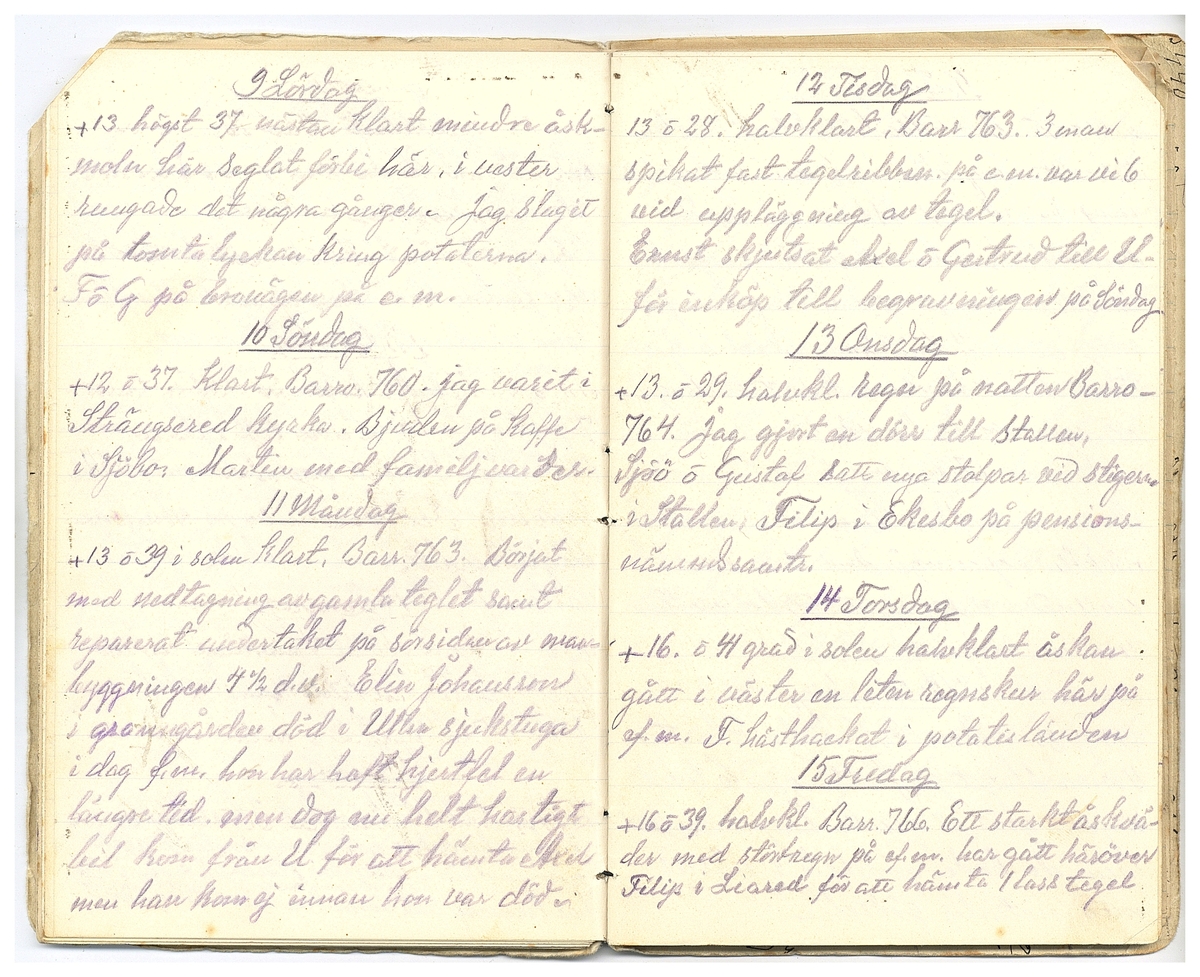 9 Lördag
+13 högst 37. nästan klart mindre åsk-
moln har seglat förbi här, i vester
rengade det några gånger. Jag slaget
på tomtalyckan kring potaterna.
F ō G på brovägen på e.m.
10 Söndag
+12 ō 37. Klart. Barro. 760. jag varit i
Strängsered Kyrka. Bjuden på Kaffe
i Sjöbo. Martin med familj var der.
11 Måndag
+13 ō 39 i solen Klart. Barr. 763. Börjat
med nedtagning av gamla teglet samt
reparerat undertaket på sörsidan av man-
byggningen 4 1/2 d.v. Elin Johansson
i granngården död i Ulr. sjukstuga
i dag f.m. hon har haft hjertfel en
längre tid. men dog nu helt hastigt
bil kom från U för att hämta Axel
men han kom ej innan hon var död.
12 Tisdag
13 ō 28. halvklart. Barr 763. 3 man
spikat fast tegelribben. på e.m. var vi 6
vid uppläggning av tegel.
Ernst skjutsat Axel ō Gertrud till U-
för inköp till begravningen på Söndag
13 Onsdag
+13. ō 29. halvkl. regn på natten Barro-
764. Jag gjort en dörr till Stallen.
Sjöö ō Gustaf satt nya stolpar vid stigern
i Stallen. Filip i Ekesbo på pensions-
nämndsamtr.
14 Torsdag
+16. ō 41 grad i solen halvklart åskan
gått i väster en liten regnskur här på
ef.m. F. hästhackat i potatislanden
15 Fredag
+16 ō 39. halvkl. Barr. 766. Ett starkt åskvä-
der med störtregn på ef.m. har gått häröver
Filip i Liared för att hämta 1 lass tegel